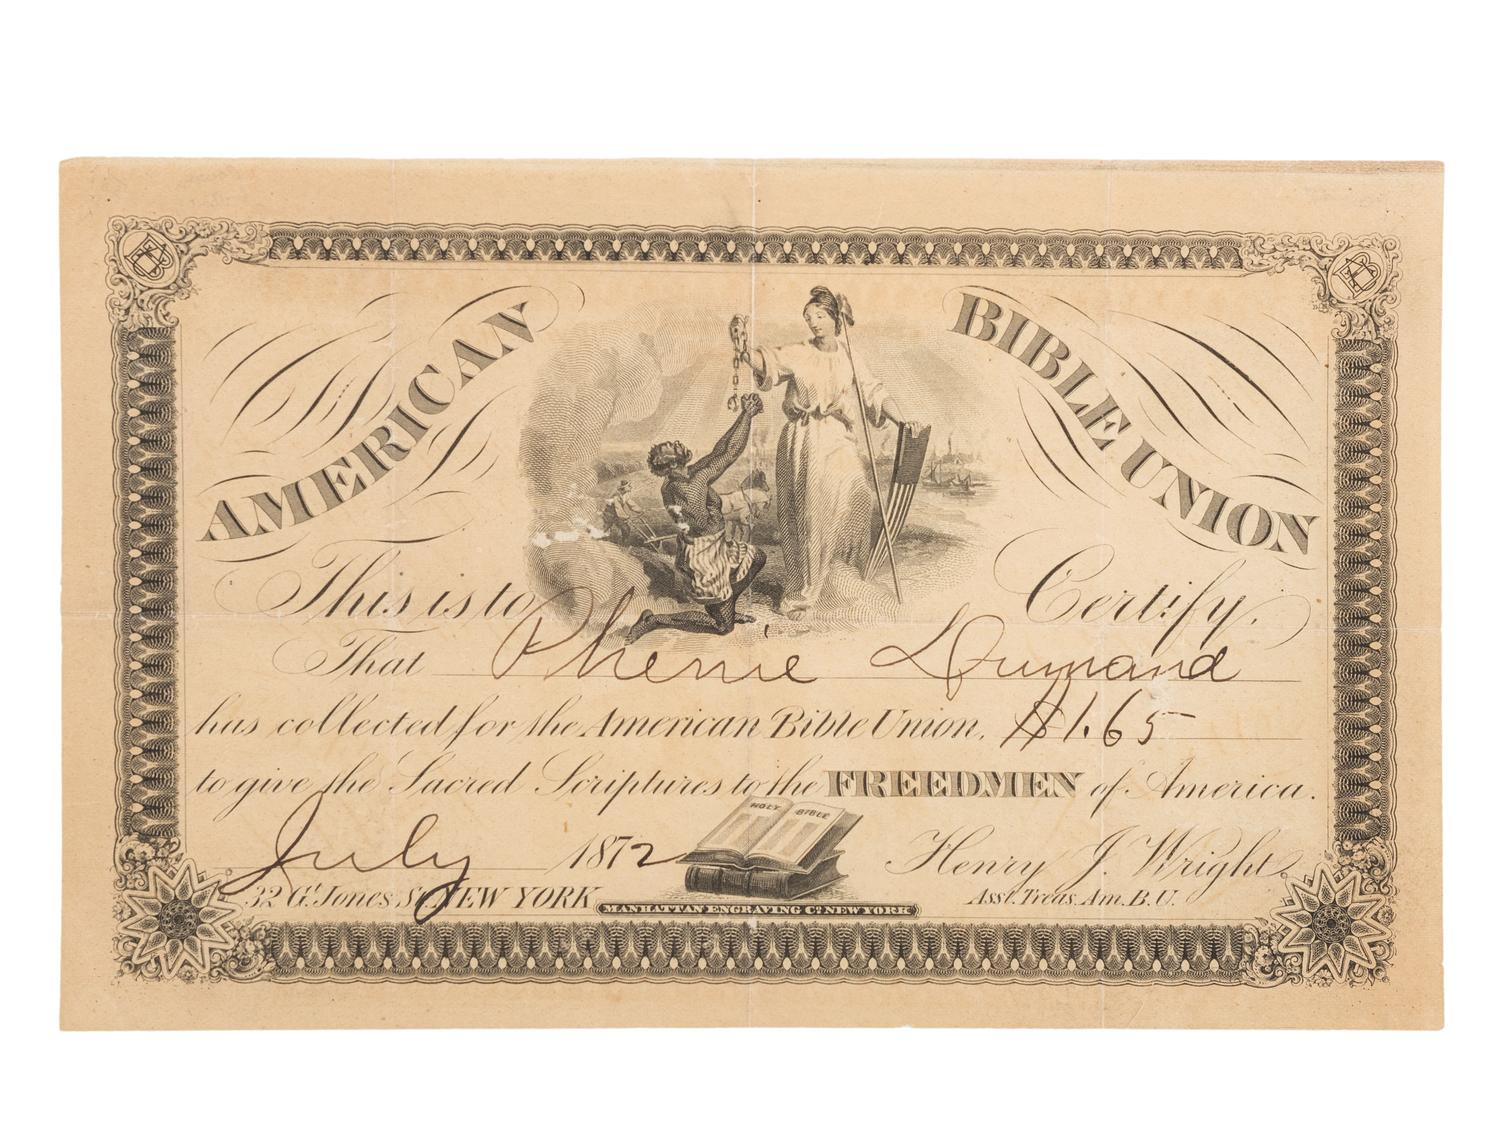 AMERICAN BIBLE UNION
This is to Certify,
That Phenie Dumand
has collected for the American Bible Union, $1.65
to give the Sacred Scriptures to the FREEDMEN of America.
HOLY BIBLE
July 1872 Henry J. Wright
32 Gt. Jones St. NEW YORK Asst. Treas. Am. B. U.
MANHATTAN ENGRAVING Co. NEW YORK